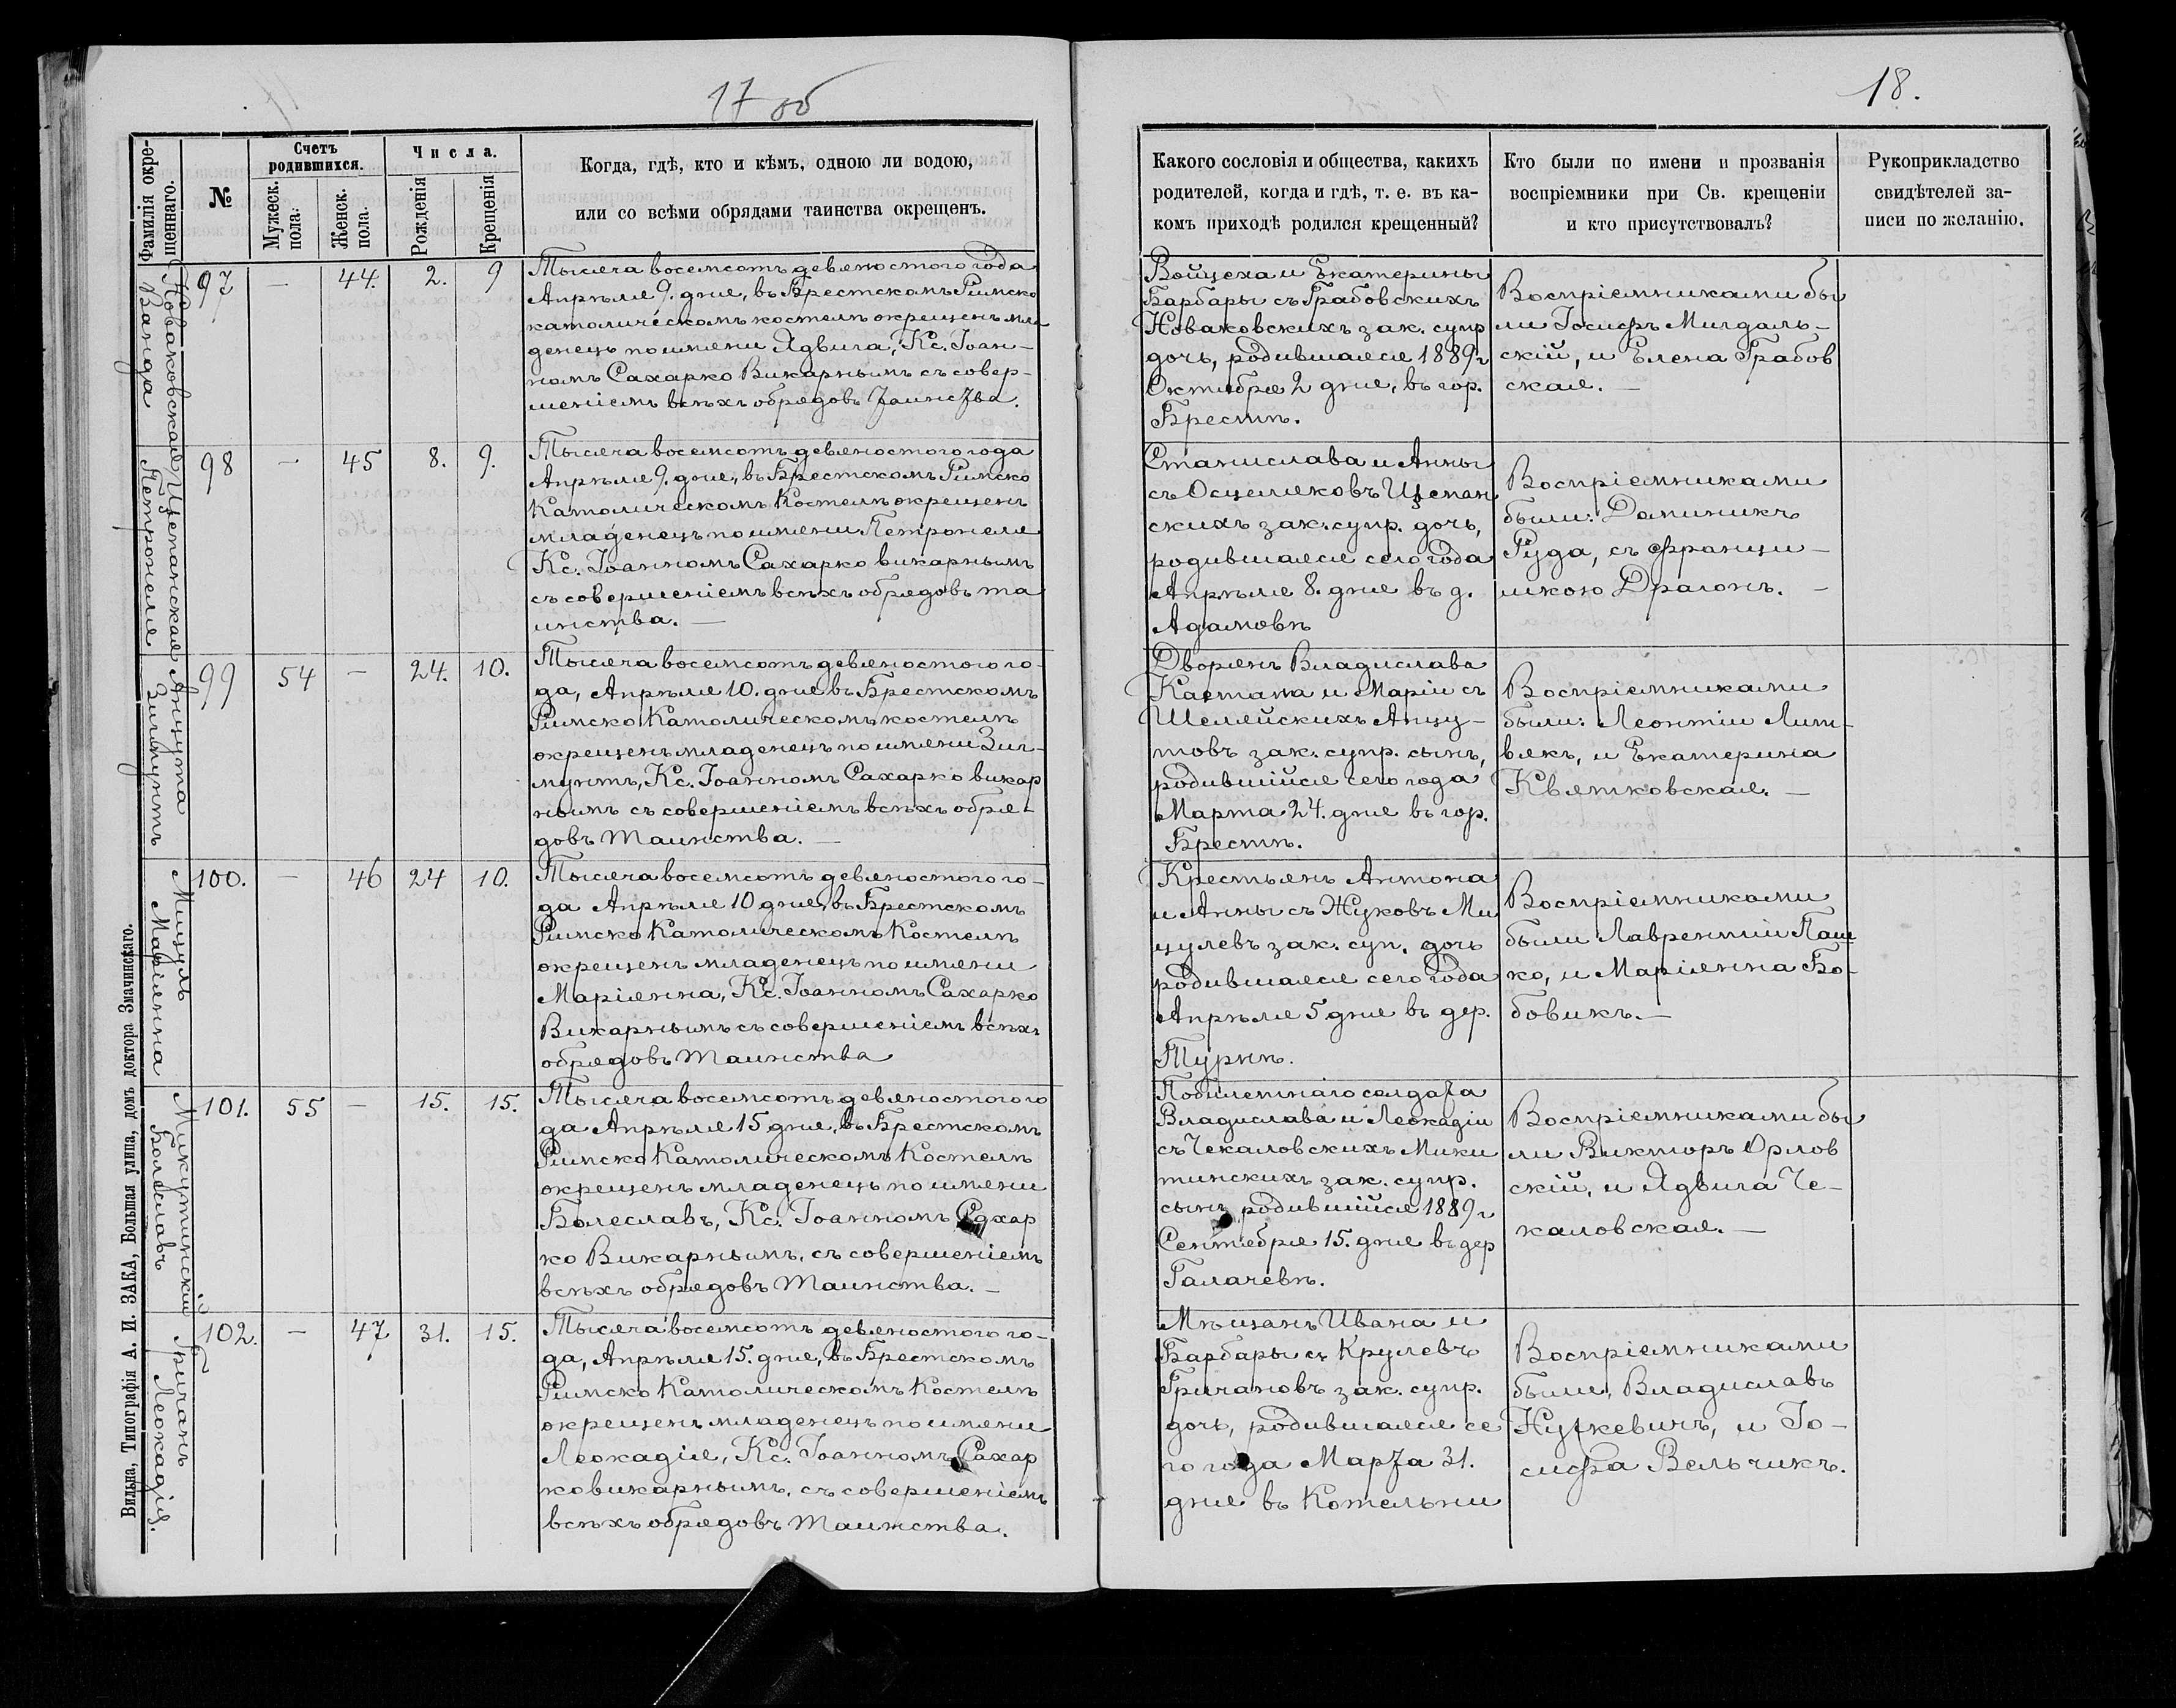 17 об
Фамилія окре-
щеннаго.
№
Счетъ
родившихся.
Мужеск.
пола.
Женск.
пола.
Числа.
Рожденія
Крещенія
Когда, гдѣ, кто и кѣмъ, одною ли водою,
или со всѣми обрядами таинства окрещенъ.
Новаковская
Ванда
97 — 44. 2. 9
Тысяча восемсотъ девяностого года
Апрѣля 9. дня, въ Брестскомъ Римско
католическомъ костелѣ окрещенъ мла
денецъ по имени Ядвига, Кс. Іоан-
номъ Сахарко Викарнымъ съ совер-
шеніемъ всѣхъ обрядовъ Таинства.
Щепанская
Петронеля
98 — 45 8. 9.
Тысяча восемсотъ девяностого года
Апрѣля 9. дня, въ Брестскомъ Римско
Католическомъ Костелѣ окрещенъ
младенецъ по имени Петронеля
Кс. Іоанномъ Сахарко викарнымъ
съ совершеніемъ всѣхъ обрядовъ та
инства. —
Анцута
Зигмунтъ
99 54 — 24. 10.
Тысяча восемсотъ девяностого го-
да, Апрѣля 10. дня въ Брестскомъ
Римско Католическомъ костелѣ
окрещенъ младенецъ по имени Зиг-
мунтъ, Кс. Іоанномъ Сахарко викар
нымъ съ совершеніемъ всѣхъ обря-
довъ Таинства. —
Мицуль
Маріянна
100. — 46 24 10.
Тысяча восемсотъ девяностого го-
да Апрѣля 10 дня, въ Брестскомъ
Римско Католическомъ Костелѣ
окрещенъ младенецъ по имени
Маріянна, Кс. Іоанномъ Сахарко
Викарнымъ съ совершеніемъ всѣхъ
обрядовъ Таинства
Микутинскій
Болеславъ
101. 55 — 15. 15.
Тысяча восемсотъ девяностого го
да Апрѣля 15 дня, въ Брестскомъ
Римско Католическомъ Костелѣ
окрещенъ младенецъ по имени
Болеславъ, Кс. Іоанномъ Сахар
ко Викарнымъ, съ совершеніемъ
всѣхъ обрядовъ Таинства. —
Гричанъ
Леокадія.
102. — 47 31. 15.
Тысяча восемсотъ девяностого го-
да, Апрѣля 15. дня, въ Брестскомъ
Римско Католическомъ Костелѣ
окрещенъ младенецъ по имени
Леокадія, Кс. Іоанномъ Сахар
ко викарнымъ, съ совершеніемъ
всѣхъ обрядовъ Таинства.
Вильна, Типографія А. И. ЗАКА, Большая улица, домъ доктора Змачинскаго.
18.
Какого сословія и общества, какихъ
родителей, когда и гдѣ, т. е. въ ка-
комъ приходѣ родился крещенный?
Кто были по имени и прозванія
воспріемники при Св. крещеніи
и кто присутствовалъ?
Рукоприкладство
свидѣтелей за-
писи по желанію.
Войцеха и Екатерины
Барбары съ Грабовскихъ
Новаковскихъ зак. супр
дочь, родившаяся 1889 г
Октября 2 дня, въ гор.
Брестѣ.
Воспріемниками бы
ли Іосифъ Мигдаль-
скій, и Елена Грабов
ская. —
Станислава и Анны
съ Осцеляковъ Щепан
скихъ зак. супр. дочь,
родившаяся сего года
Апрѣля 8. дня въ д.
Адамовѣ
Воспріемниками
были: Доминикъ
Руда, съ Франци-
шкою Драгонъ. —
Дворянъ Владислава
Каетана и Маріи съ
Шелейскихъ Анцу-
товъ зак. супр. сынъ,
родившійся сего года
Марта 24. дня въ гор.
Брестѣ.
Воспріемниками
были: Леонтій Лит-
вякъ, и Екатерина
Квятковская. —
Крестьянъ Антона
и Анны съ Жуковъ Ми
цулевъ зак. суп. дочь
родившаяся сего года
Апрѣля 5 дня въ дер.
Турнѣ.
Воспріемниками
были Лаврентій Паш
ко, и Маріянна Бо-
бовикъ. —
Побилетнаго солдата
Владислава и Леокадіи
съ Чекаловскихъ Мики
тинскихъ зак. супр.
сынъ родившійся 1889 г
Сентября 15. дня въ дер
Галачевѣ.
Воспріемниками бы
ли Викторъ Орлов
скій, и Ядвига Че-
каловская. —
Мѣщанъ Ивана и
Барбары съ Крулевъ
Гричановъ зак. супр.
дочь, родившаяся се
го года Марта 31.
дня въ Котельни
Воспріемниками
были, Владиславъ
Нуткевичъ, и Іо-
сифа Вельчикъ.